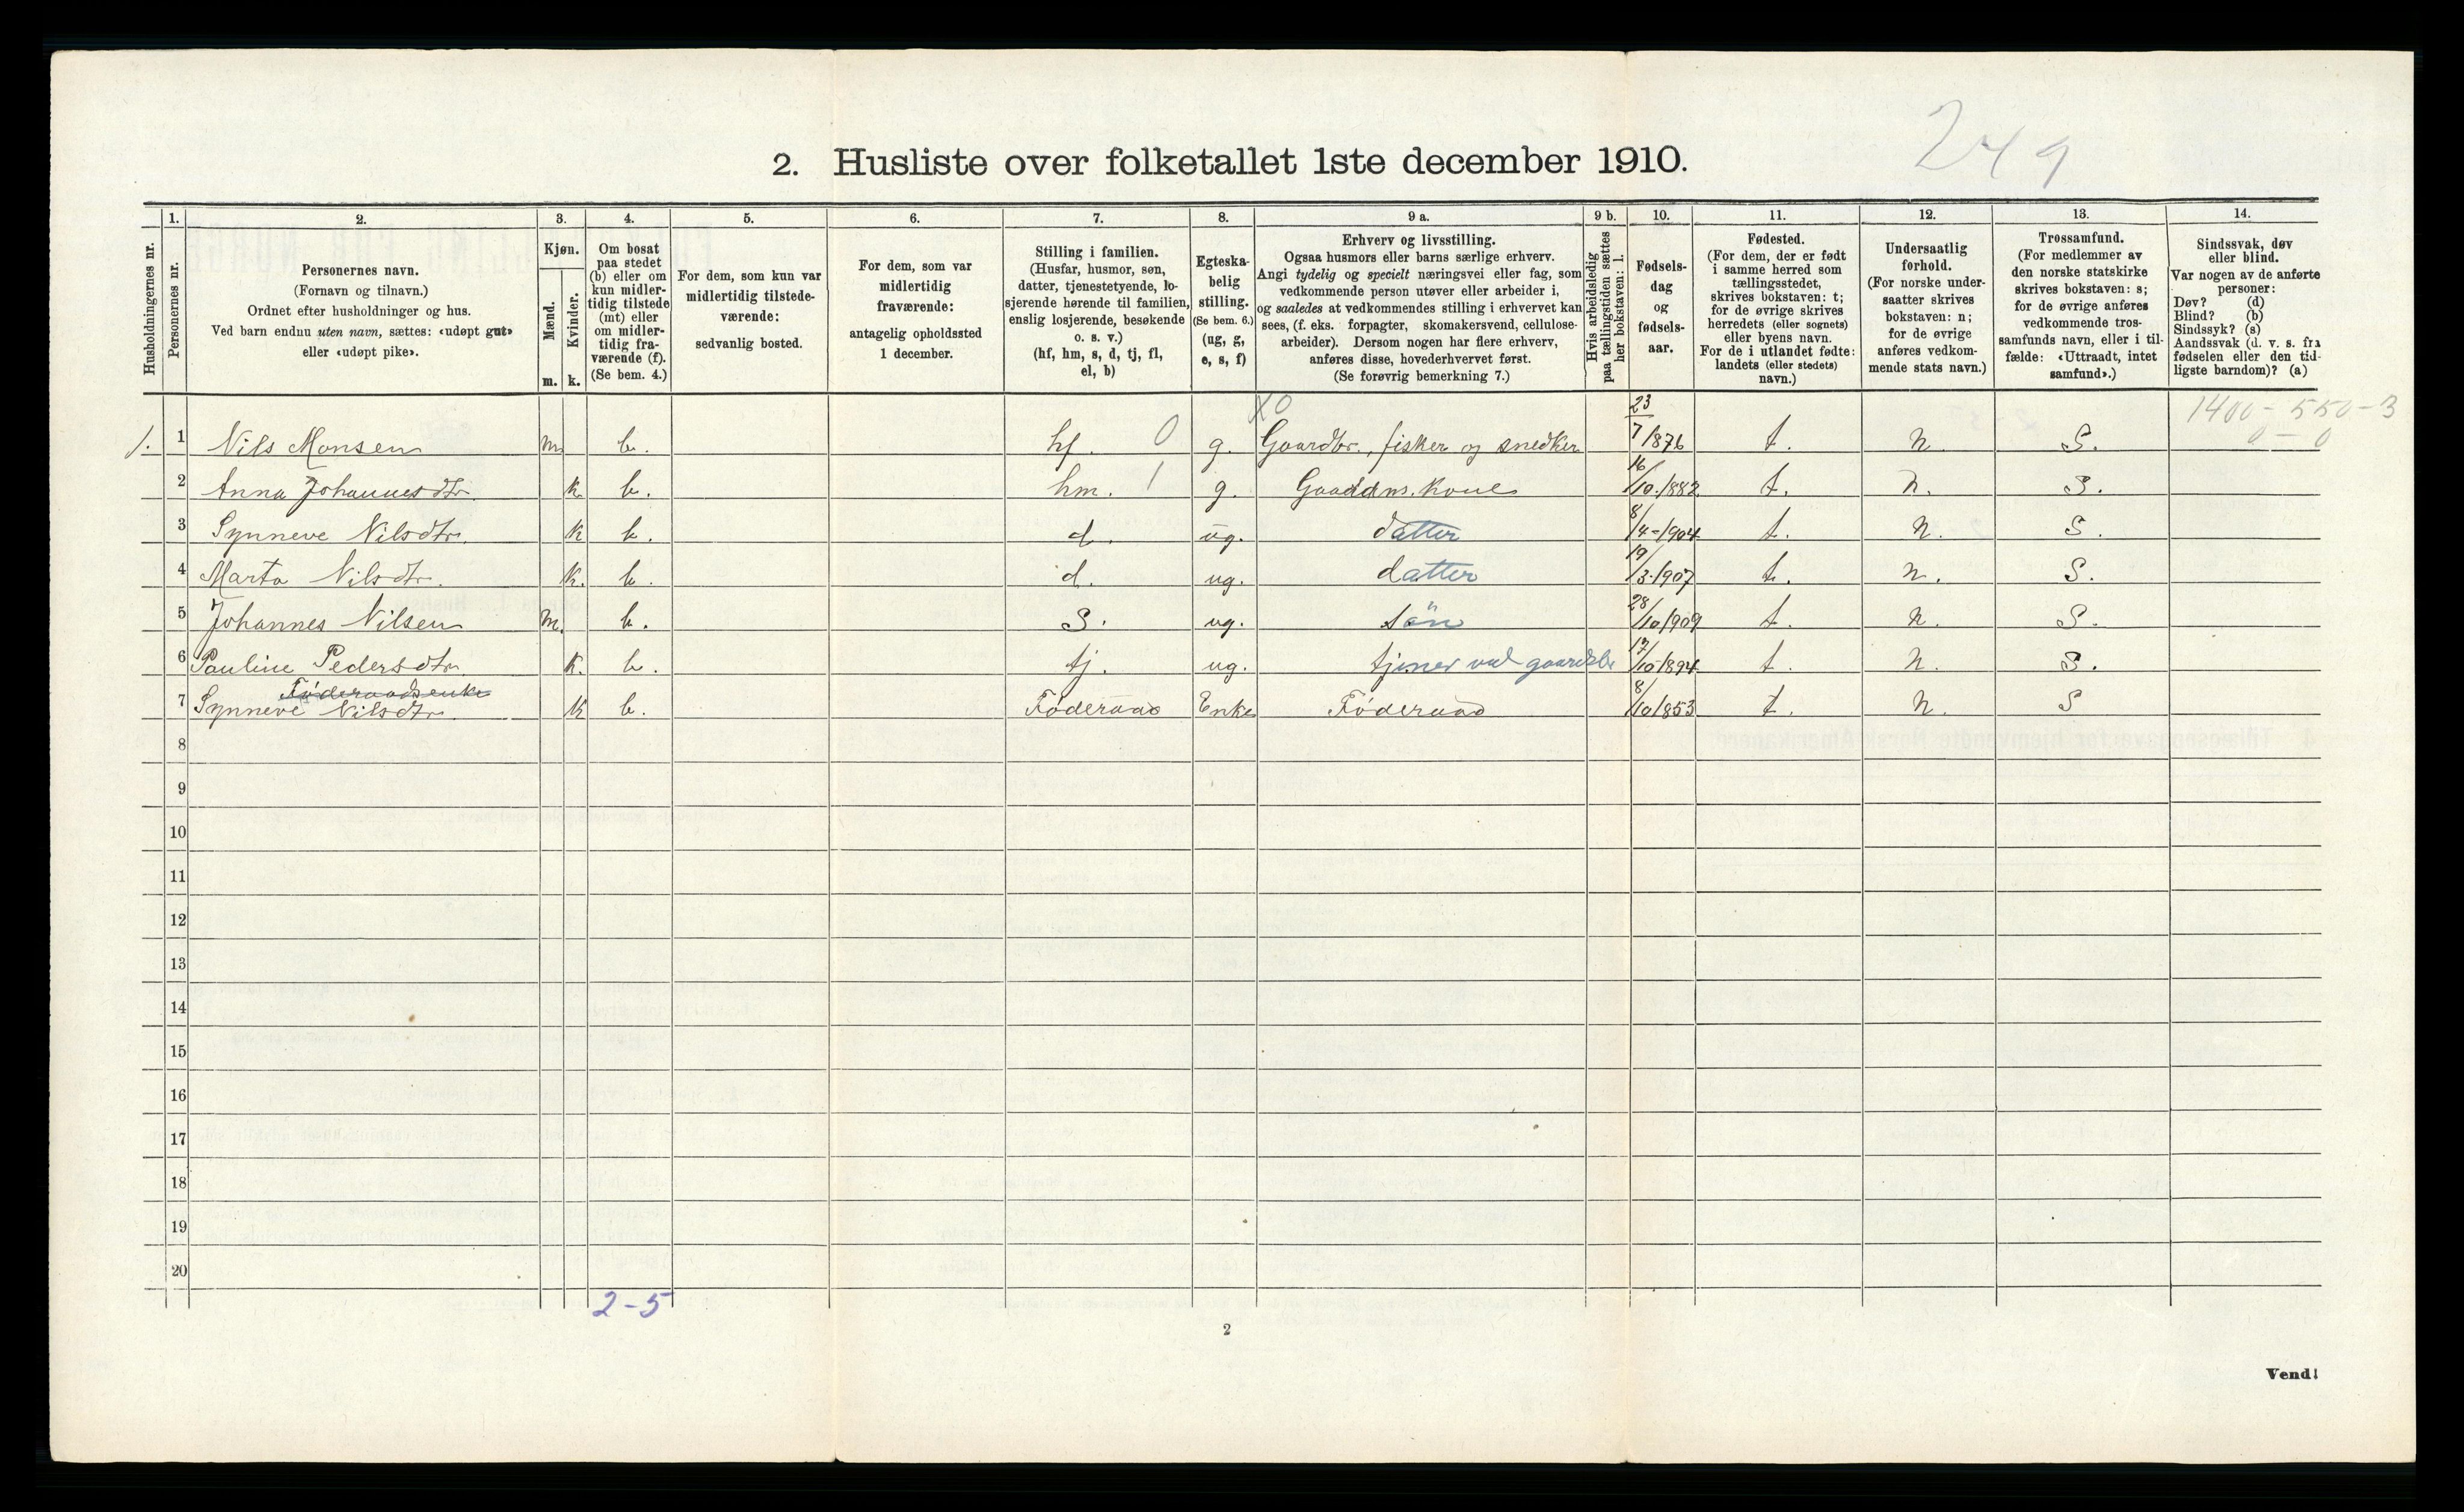 249
2. Husliste over folketallet 1ste december 1910.
Husholdningernes nr.
1.
Personernes nr.
2.
Personernes navn.
(Fornavn og tilnavn.)
Ordnet efter husholdninger og hus.
Ved barn endnu uten navn, sættes: «udøpt gut»
eller «udøpt pike».
3.
Kjøn.
Mænd.
Kvinder.
m.
k.
4.
Om bosat
paa stedet
(b) eller om
kun midler-
tidig tilstede
(mt) eller
om midler-
tidig fra-
værende (f).
(Se bem. 4.)
5.
For dem, som kun var
midlertidig tilstede-
værende:
sedvanlig bosted.
6.
For dem, som var
midlertidig
fraværende:
antagelig opholdssted
1 december.
7.
Stilling i familien.
(Husfar, husmor, søn,
datter, tjenestetyende, lo-
sjerende hørende til familien,
enslig losjerende, besøkende
o. s. v.)
(hf, hm, s, d, tj, fl,
el, b)
8.
Egteska-
belig
stilling.
(Se bem. 6.)
(ug, g,
e, s, f)
9 a.
Erhverv og livsstilling.
Ogsaa husmors eller barns særlige erhverv.
Angi tydelig og specielt næringsvei eller fag, som
vedkommende person utøver eller arbeider i,
og saaledes at vedkommendes stilling i erhvervet kan
sees, (f. eks. forpagter, skomakersvend, cellulose-
arbeider). Dersom nogen har flere erhverv,
anføres disse, hovederhvervet først.
(Se forøvrig bemerkning 7.)
9 b.
Hvis arbeidsledig
paa tællingstiden sættes
her bokstaven: l.
10.
Fødsels-
dag
og
fødsels-
aar.
11.
Fødested.
(For dem, der er født
i samme herred som
tællingsstedet,
skrives bokstaven: t;
for de øvrige skrives
herredets (eller sognets)
eller byens navn.
For de i utlandet fødte:
landets (eller stedets)
navn.)
12.
Undersaatlig
forhold.
(For norske under-
saatter skrives
bokstaven: n;
for de øvrige
anføres vedkom-
mende stats navn.)
13.
Trossamfund.
(For medlemmer av
den norske statskirke
skrives bokstaven: s;
for de øvrige anføres
vedkommende tros-
samfunds navn, eller i til-
fælde: «Uttraadt, intet
samfund».)
14.
Sindssvak, døv
eller blind.
Var nogen av de anførte
personer:
Døv? (d)
Blind? (b)
Sindssyk? (s)
Aandssvak (d. v. s. fra
fødselen eller den tid-
ligste barndom)? (a)
X0
1400-550-3
0-0
1. 1 Nils Monsen m. b. hf. 0 g. Gaardbr., fisker og snedker 23/7/876 t. n. S.
2 Anna Johannesdtr. k. b. hm. 1 g. Gaardm. kone 16/10/882 t. n. S.
3 Synneve Nilsdtr. k b. d. ug. datter 8/4-1904 t. n. S.
4 Marta Nilsdtr. k. b. d. ug. datter 19/3-1907 t. n. S.
5 Johannes Nilsen m. b. S. ug. sön 28/10/909 t. n. S.
6 Pauline Pedersdtr. k. b. tj. ug. tjener ved gaardsbr 17/10/894 t. n. S.
Føderaadsenke
7 Synneve Nilsdtr. k b. Føderaad Enke Føderaad 8/10/853 t. n. S
8
9
10
11
12
13
14
15
16
17
18
19
20
2-5
2
Vend!